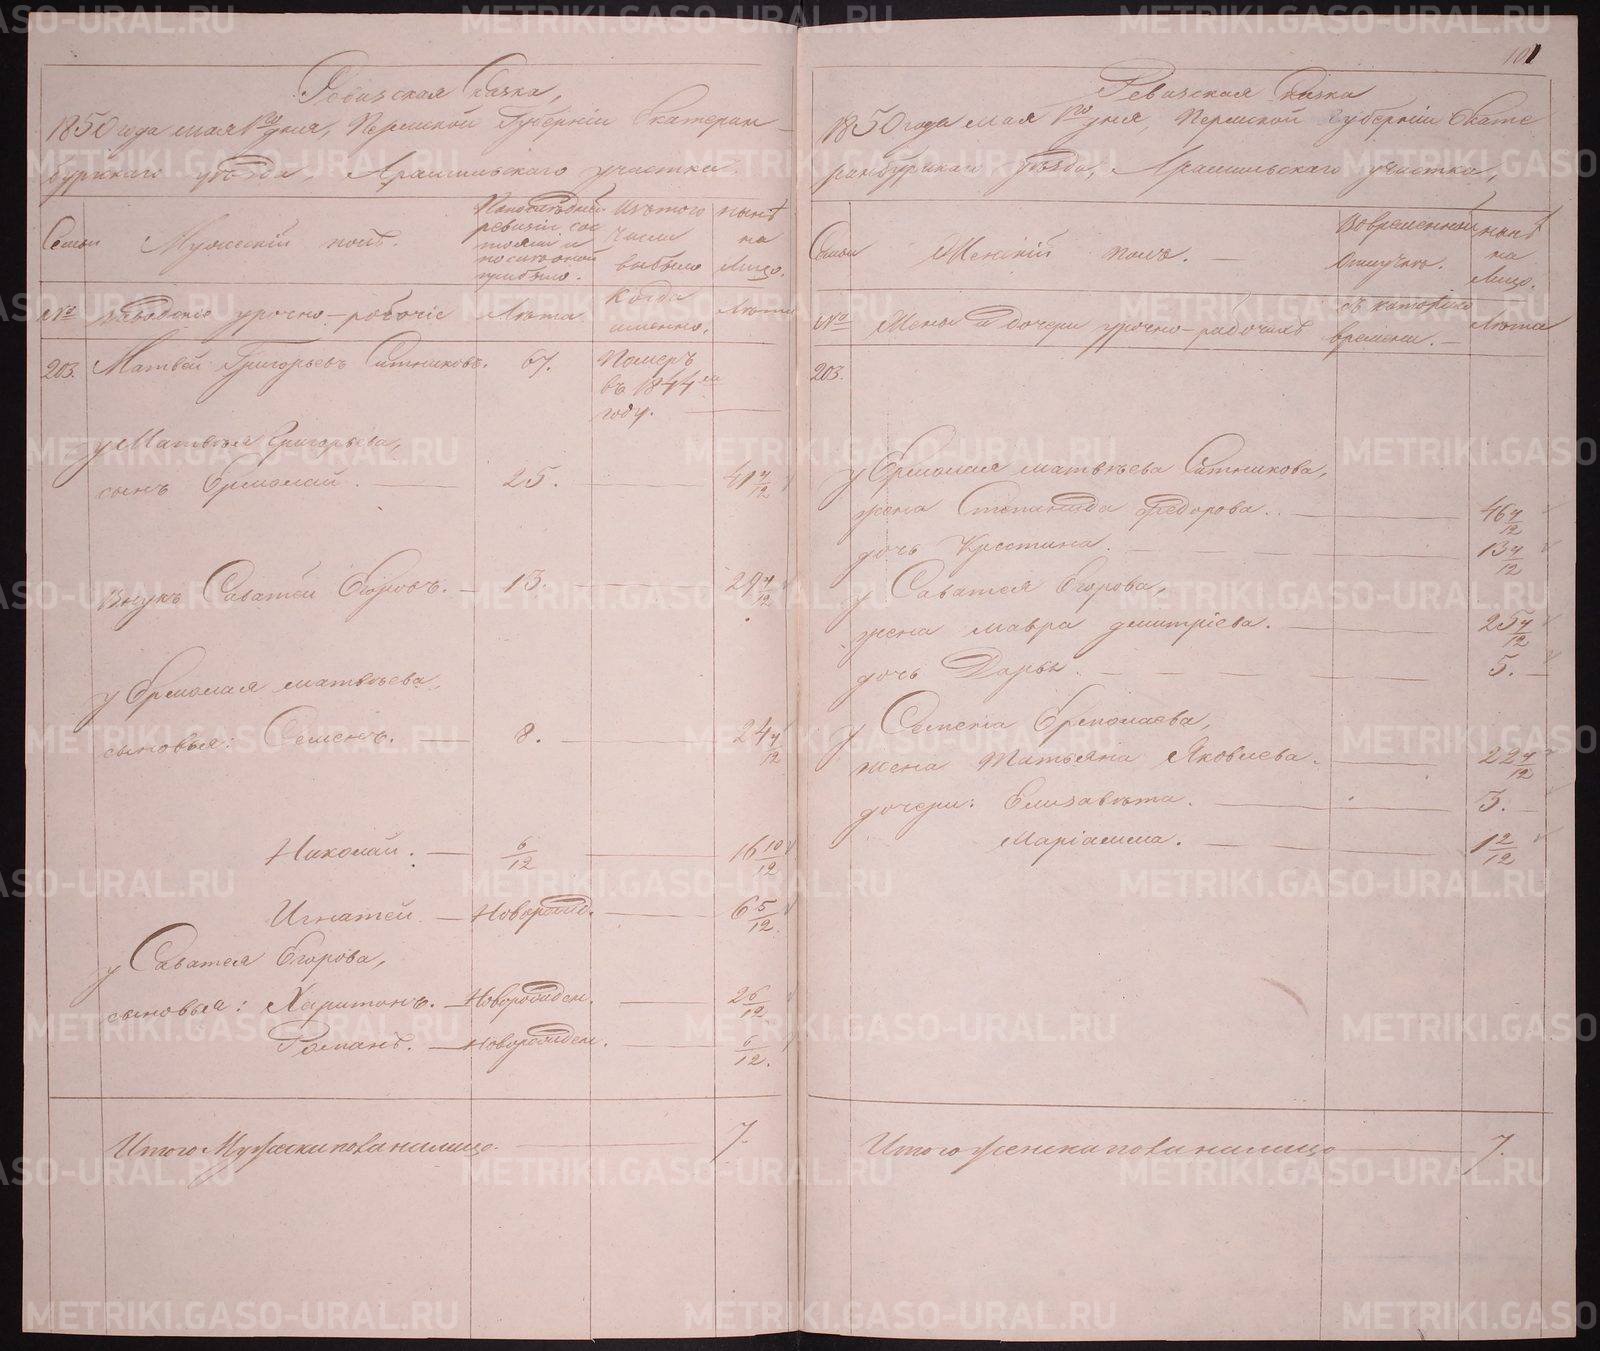 Ревизская сказка,
1850 года мая 1го дня, Пермской Губернiи Екатерин-
бургскаго уѣзда, Арамильскаго участка
Семьи
Мужескiй полъ.
По последней ревизiи состояло и после оной прибыло.
Изъ того числа выбыло
нынѣ на лицо.
№
заводскiе урочно-робочiе
Лѣта
Когда именно.
Лѣта
203. Матвей Григорьевъ Ситниковъ. 67. Померъ въ 1844 м году.
у Матвѣя Григорьева,
сынъ Ермолай. 25. 41 7/12
Внукъ Саватей Егоровъ. 13. 29 7/12
у Ермолая Матвѣева,
сыновья: Семенъ. 8. 24 7/12
Николай. 6/12 16 10/12
Игнатей. Новорожд. 6 5/12
у Саватея Егорова,
сыновья: Харитонъ. Новорожден. 2 6/12
Романъ. Новорожден. 6/12.
Итого Мужеска пола на лицо. 7.
101
Ревизская сказка
1850 года мая 1го дня, Пермской Губернiи Екате
ринбургскаго уѣзда, Арамильскаго участка,
Семьи
Женскiй полъ.
Во временной отлучкѣ.
нынѣ на Лицо.
№
Жены и дочери урочно-рабочихъ
съ котораго времени.
Лѣта
203.
у Ермолая Матвѣева Ситникова,
жена Степанида Федорова. 46 7/12
дочь Кристина. 13 7/12
у Саватея Егорова,
жена Мавра Дмитрiева. 25 7/12
дочь Дарья. 5.
у Семена Ермолаева,
жена Татьяна Яковлева. 22 7/12
дочери: Елизавѣта. 3.
Марiамна. 1 2/12
Итого женска пола на лицо 7.
METRIKI.GASO-URAL.RU